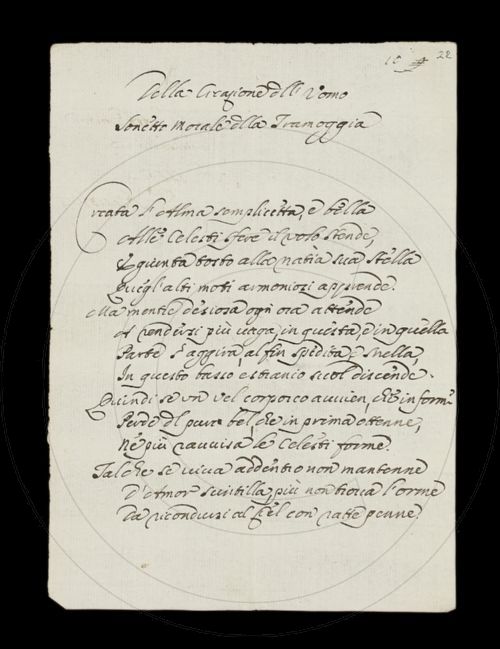 15 22
Della Creazione dell' Uomo
Sonetto Morale della Tramoggia
Creata l'Alma semplicetta, e bella
Alle Celesti sfere il volo stende,
E giunta tosto alla natia sua stella
Quegl'alti moti armoniosi apprende.
Ma mentre desiosa ogn'ora attende
A rendersi più vaga, in questa, e in quella
Parte s'aggira, al fin spedita e snella,
In questo basso estranio suol discende.
Quindi se un vel corporeo avvien, che informi
Perde il puro bel, che in prima ottenne,
Nè più ravvisa le Celesti forme.
Talche se viva addentro non mantenne
D'Amor scintilla, più non trova l'orme
Da ricondursi al Ciel con ratte penne.